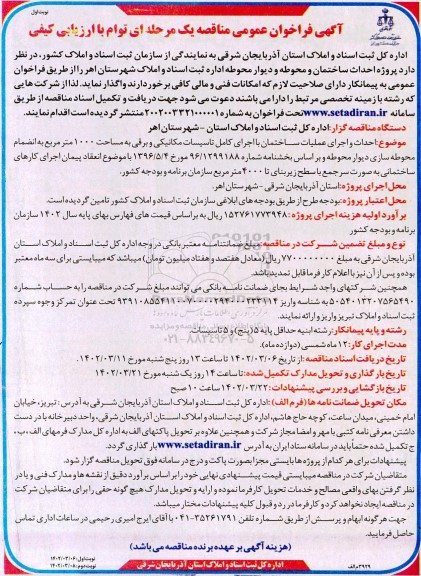 نوبت اول
آگهی فراخوان عمومی مناقصه یک مرحله ای توام با ارزیابی کیفی
اداره کل ثبت اسناد و املاک استان آذربایجان شرقی به نمایندگی از سازمان ثبت اسناد و املاک کشور، در نظر
دارد پروژه احداث ساختمان و محوطه و دیوار محوطه اداره ثبت اسناد و املاک شهرستان اهر را از طریق فراخوان
عمومی به پیمانکار دارای صلاحیت لازم که امکانات فنی و مالی کافی برخوردارند واگذار نماید. لذا از شرکت هایی
که رشته یا زمینه تخصصی مرتبط را دارا می باشند دعوت می شود جهت دریافت و تکمیل اسناد مناقصه از طریق
سامانه www.setadiran.ir تحت فراخوان به شماره ۲۰۰۲۰۰۳۳۲۱۰۰۰۰۰۱ منتشر گردیده است اقدام نمایند.
دستگاه مناقصه گزار: اداره کل ثبت اسناد و املاک استان - شهرستان اهر
موضوع: احداث و اجرای عملیات ساختمان با اجرای کامل تاسیسات مکانیکی و برقی به مساحت ۱۰۰۰ متر مربع به انضمام
محوطه سازی دیوار محوطه و بر اساس بخشنامه شماره ۹۶/۱۲۹۹۱۸۸ مورخ ۱۳۹۶/۵/۴ با موضوع انعقاد پیمان اجرای کارهای
ساختمانی به صورت سرجمع با سطح زیربنای تا ۴۰۰۰ متر مربع سازمان برنامه و بودجه کشور.
محل اجرای پروژه: استان آذربایجان شرقی - شهرستان اهر.
محل اعتبار پروژه: بودجه طرح از طریق بودجه های ابلاغی سازمان ثبت اسناد و املاک کشور تامین گردیده است.
برآورد اولیه هزینه اجرای پروژه: ۱۵۲۷۶۱۷۷۳۹۴۸ ریال به براساس قیمت های فهارس بهای پایه سال ۱۴۰۲ سازمان
برنامه و بودجه کشور
نوع و مبلغ تضمین شرکت در مناقصه: مبلغ ضمانتنامه معتبر بانکی در وجه اداره کل ثبت اسناد و املاک استان
آذربایجان شرقی به مبلغ ۷۷۰۰۰۰۰۰۰۰ ریال (معادل هفتصد و هفتاد میلیون تومان) میباشد که میبایستی برای سه ماه معتبر
بوده و پس از آن نیز با اعلام کارفرما قابل تمدید باشد.
همچنین شرکتهای واجد شرایط بجای ضمانت نامه بانکی می توانند مبلغ شرکت در مناقصه را به حساب شماره
تحت عنوان تمرکز وجوه سپرده
ثبت اسناد و املاک تبریز واریز و ارائه نمایند.
رشته و پایه پیمانکار: رشته ابنیه حداقل پایه ۵ (پنج) و ۵ تاسیسات
مدت اجرای کار: ۱۲ ماه شمسی (دوازده ماه).
تاریخ دریافت اسناد مناقصه: از تاریخ ۱۴۰۲/۰۳/۰۶ تا ساعت ۱۳ روز پنج شنبه مورخ ۱۴۰۲/۰۳/۱۱
تاریخ بارگذاری و تحویل مدارک تکمیل شده: تا ساعت ۱۴ روز یک شنبه مورخ ۱۴۰۲/۰۳/۲۱
تاریخ بازگشایی و بررسی پیشنهادات: ۱۴۰۲/۰۳/۲۲ ساعت ۱۰ صبح
مکان تحویل ضمانت نامه ها (فرم الف): اداره کل ثبت اسناد و املاک استان آذربایجان شرقی به آدرس: تبریز، خیابان
امام خمینی، میدان ساعت، کوچه حاج هاشم، اداره کل ثبت اسناد و املاک استان آذربایجان شرقی، واحد دبیرخانه با در دست
داشتن معرفی نامه کتبی با مهر و امضا مجاز شرکت و همچنین علاوه بر تحویل پاکتهای الف به اداره کل مدارک فرمهای الف، ب،
ج تکمیل شده حتماً باید در سامانه ستاد ایران به آدرس www.setadiran.ir بارگذاری گردد.
پیشنهادات برای هر کدام از پروژه ها بایستی مجزا بصورت پاکت و درج در سامانه فوق تحویل مناقصه گزار شود.
متقاضیان شرکت در مناقصه میبایستی قیمت پیشنهادی نهایی خود را بر اساس برآورد دقیق از نقشه ها و مدارک فنی و با در
نظر گرفتن بهای واقعی مصالح و خدمات تحویل کارفرما نموده و ارایه و تحویل مدارک هیچ گونه حقی را برای متقاضیان شرکت
در مناقصه ایجاد نخواهد کرد و کارفرما در رد و قبول کلیه پیشنهادات مختار میباشد.
جهت هر گونه ابهام و پرسش از طریق شماره تلفن ۳۵۲۶۱۷۹۱-۰۴۱ با آقای ایرج امیری رحیمی در ساعات اداری تماس
حاصل فرمایید.
(هزینه آگهی بر عهده برنده مناقصه می باشد)
نوبت اول: ۱۴۰۲/۰۳/۰۶
نوبت دوم: ۱۴۰۲/۰۳/۰۸
اداره کل ثبت اسناد و املاک استان آذربایجان شرقی
۳۹۲۹ م الف